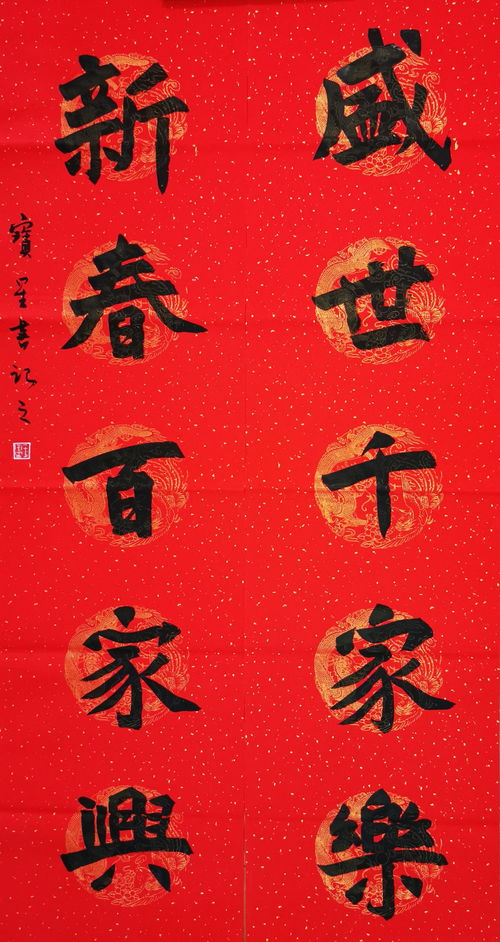 盛世千家樂
新春百家興
寶星書